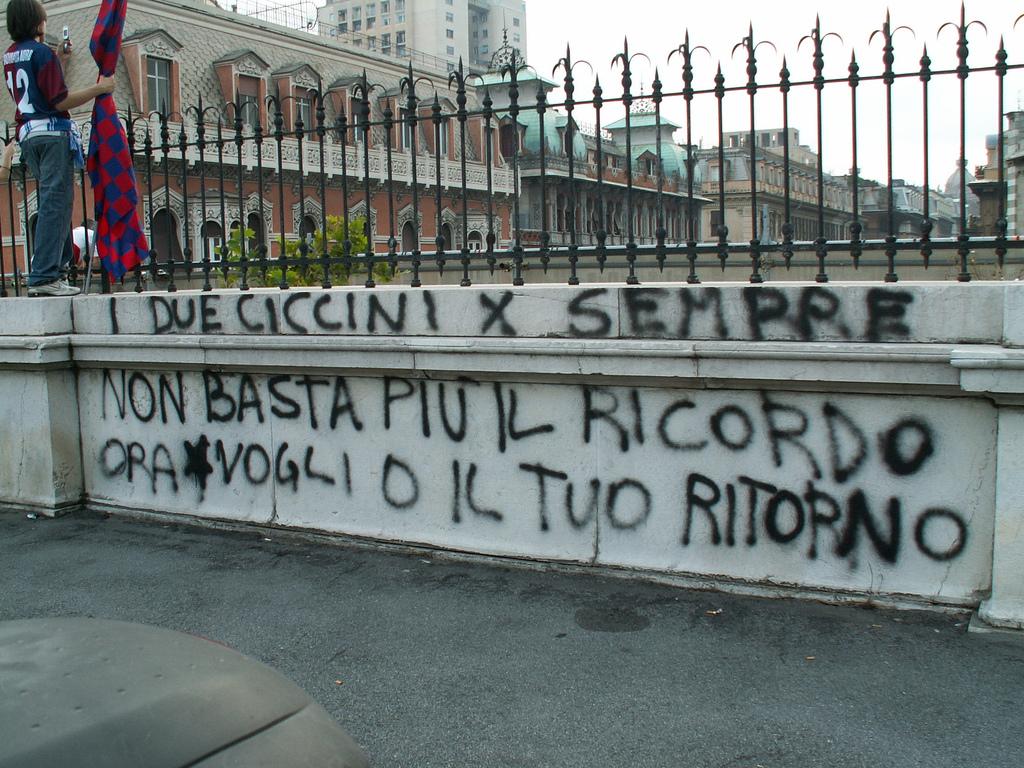 12
I DUE CICCINI X SEMPRE
NON BASTA PIÙ IL RICORDO
ORA VOGLIO IL TUO RITORNO